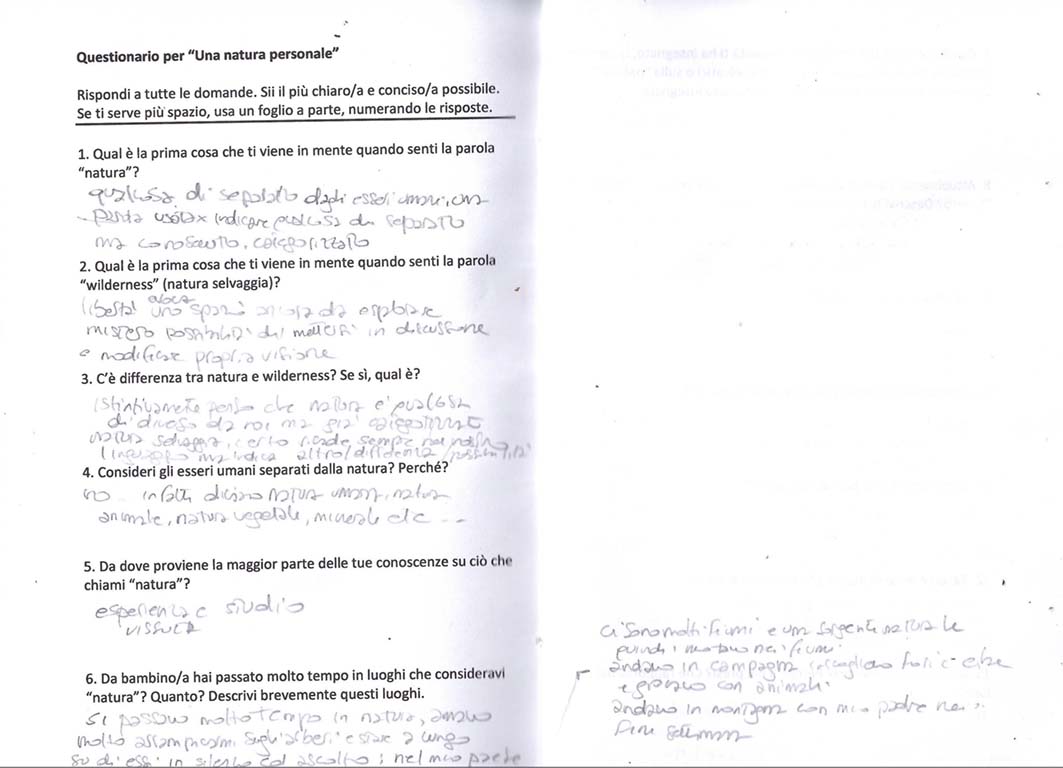 Questionario per “Una natura personale”
Rispondi a tutte le domande. Sii il più chiaro/a e conciso/a possibile.
Se ti serve più spazio, usa un foglio a parte, numerando le risposte.
1. Qual è la prima cosa che ti viene in mente quando senti la parola
“natura”?
qualcosa di separato dagli esseri umani, una
parola usata x indicare qualcosa di separato
ma conosciuto, categorizzato
2. Qual è la prima cosa che ti viene in mente quando senti la parola
“wilderness” (natura selvaggia)?
libertà uno spazio ancora da esplorare
mistero possibilità di metterti in discussione
e modificare propria visione
3. C’è differenza tra natura e wilderness? Se sì, qual è?
istintivamente penso che natura è qualcosa
di diverso da noi ma già categorizzato
natura selvaggia, certo ricade sempre nel nostro
linguaggio ma indica altro/differenza/possibilità
4. Consideri gli esseri umani separati dalla natura? Perché?
no infatti diciamo natura umana, natura
animale, natura vegetale, minerale etc ...
5. Da dove proviene la maggior parte delle tue conoscenze su ciò che
chiami “natura”?
esperienza e studio
vissuta
6. Da bambino/a hai passato molto tempo in luoghi che consideravi
“natura”? Quanto? Descrivi brevemente questi luoghi.
si passavo molto tempo in natura, amavo
molto arrampicarmi sugli alberi e stare a lungo
su di essi in silenzio ed ascolto; nel mio paese
ci sono molti fiumi e una sorgente naturale
quindi nei fiumi
andavo in campagna
e giocavo con animali
andavo in montagna con mio padre nei
fine settimana